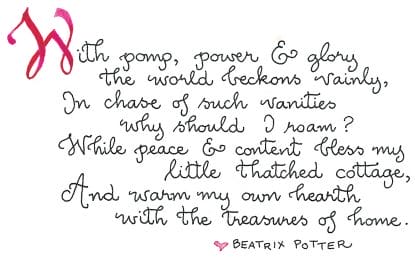 With pomp, power & glory
the world beckons vainly,
In chase of such vanities
why should I roam?
While peace & content bless my
little thatched cottage,
And warm my own hearth
with the treasures of home.
BEATRIX POTTER